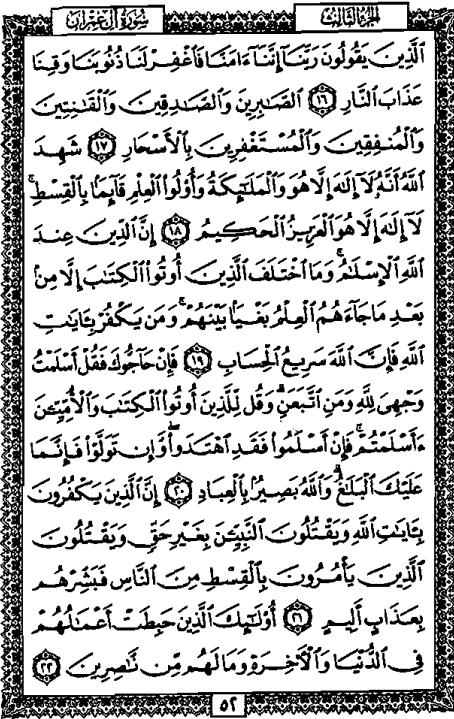 سُورَةُ آلِ عِمْرَانَ
الجُزْءُ الثَّالِثُ
ٱلَّذِينَ يَقُولُونَ رَبَّنَآ إِنَّنَآ ءَامَنَّا فَٱغْفِرْ لَنَا ذُنُوبَنَا وَقِنَا
عَذَابَ ٱلنَّارِ ١٦ ٱلصَّٰبِرِينَ وَٱلصَّٰدِقِينَ وَٱلْقَٰنِتِينَ
وَٱلْمُنفِقِينَ وَٱلْمُسْتَغْفِرِينَ بِٱلْأَسْحَارِ ١٧ شَهِدَ
ٱللَّهُ أَنَّهُۥ لَآ إِلَٰهَ إِلَّا هُوَ وَٱلْمَلَٰٓئِكَةُ وَأُو۟لُوا۟ ٱلْعِلْمِ قَآئِمًۢا بِٱلْقِسْطِ ۚ
لَآ إِلَٰهَ إِلَّا هُوَ ٱلْعَزِيزُ ٱلْحَكِيمُ ١٨ إِنَّ ٱلدِّينَ عِندَ
ٱللَّهِ ٱلْإِسْلَٰمُ ۗ وَمَا ٱخْتَلَفَ ٱلَّذِينَ أُوتُوا۟ ٱلْكِتَٰبَ إِلَّا مِنۢ
بَعْدِ مَا جَآءَهُمُ ٱلْعِلْمُ بَغْيًۢا بَيْنَهُمْ ۗ وَمَن يَكْفُرْ بِـَٔايَٰتِ
ٱللَّهِ فَإِنَّ ٱللَّهَ سَرِيعُ ٱلْحِسَابِ ١٩ فَإِنْ حَآجُّوكَ فَقُلْ أَسْلَمْتُ
وَجْهِىَ لِلَّهِ وَمَنِ ٱتَّبَعَنِ ۗ وَقُل لِّلَّذِينَ أُوتُوا۟ ٱلْكِتَٰبَ وَٱلْأُمِّيِّـۧنَ
ءَأَسْلَمْتُمْ ۚ فَإِنْ أَسْلَمُوا۟ فَقَدِ ٱهْتَدَوا۟ ۖ وَّإِن تَوَلَّوْا۟ فَإِنَّمَا
عَلَيْكَ ٱلْبَلَٰغُ ۗ وَٱللَّهُ بَصِيرٌۢ بِٱلْعِبَادِ ٢٠ إِنَّ ٱلَّذِينَ يَكْفُرُونَ
بِـَٔايَٰتِ ٱللَّهِ وَيَقْتُلُونَ ٱلنَّبِيِّـۧنَ بِغَيْرِ حَقٍّ وَيَقْتُلُونَ
ٱلَّذِينَ يَأْمُرُونَ بِٱلْقِسْطِ مِنَ ٱلنَّاسِ فَبَشِّرْهُم
بِعَذَابٍ أَلِيمٍ ٢١ أُو۟لَٰٓئِكَ ٱلَّذِينَ حَبِطَتْ أَعْمَٰلُهُمْ
فِى ٱلدُّنْيَا وَٱلْأَخِرَةِ وَمَا لَهُم مِّن نَّٰصِرِينَ ٢٢
٥٢